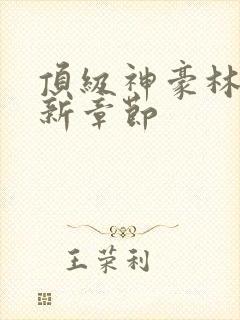 頂級神豪林
新章節
王荣利